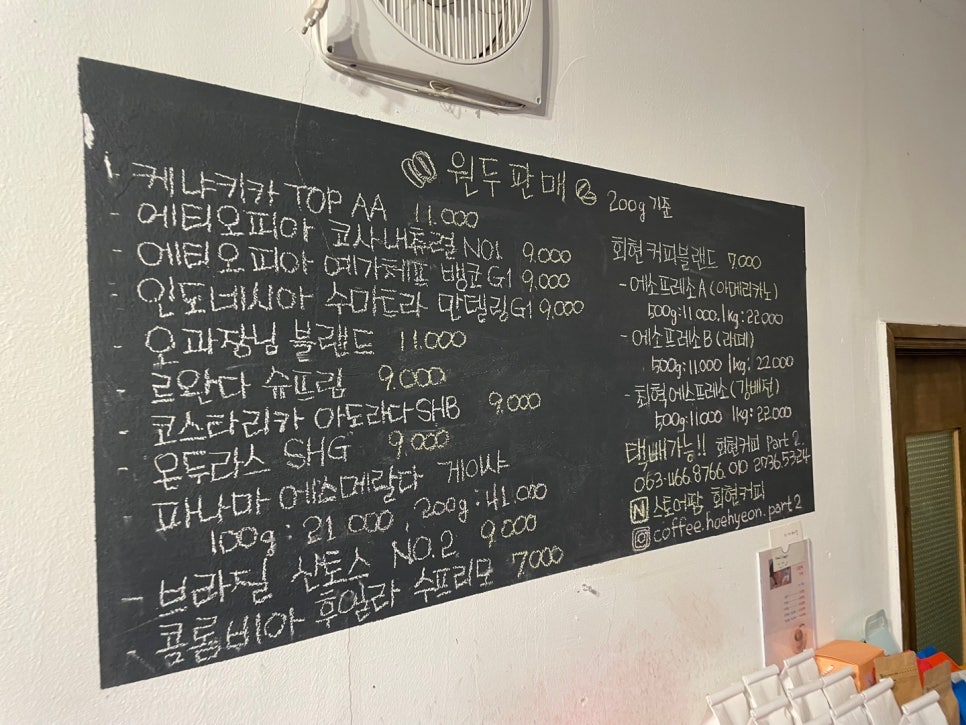 원두판매 200g 기준
- 케냐키카 TOP AA 11.000
- 에티오피아 코사 내츄럴 NO1 9.000
- 에티오피아 예가체프 뱅코 G1 9,000
- 인도네시아 수마트라 만델링G1 9,000
- 오과장님 블랜드 11.000
- 르완다 슈프림 9.000
- 코스타리카 아도라다 SHB 9.000
- 온두라스 SHG 9.000
- 파나마 에스메랄다 게이샤
100g : 21.000 , 200g : 41.000
- 브라질 산토수 NO.2 9,000
- 콜롬비아 후일라 수프리모 7,000
회현 커피블랜드 7,000
- 에소프레소A (아메리카노)
500g:11.000. 1kg:22.000
- 에소프레소B (라떼)
500g:11.000 1kg:22.000
- 최혁에스프레소(강배전)
500g:11.000 1kg:22.000
택배가능!! 회현커피 Part 2.
063.466.8766. 010 2736.5324
N 스토어팜 회현커피
coffee.hoehyeon.part2